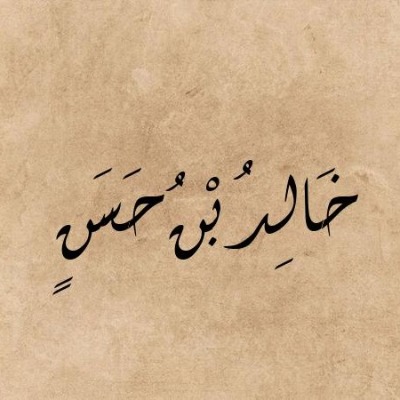 خَالِدُ بْنُ حَسَنٍ